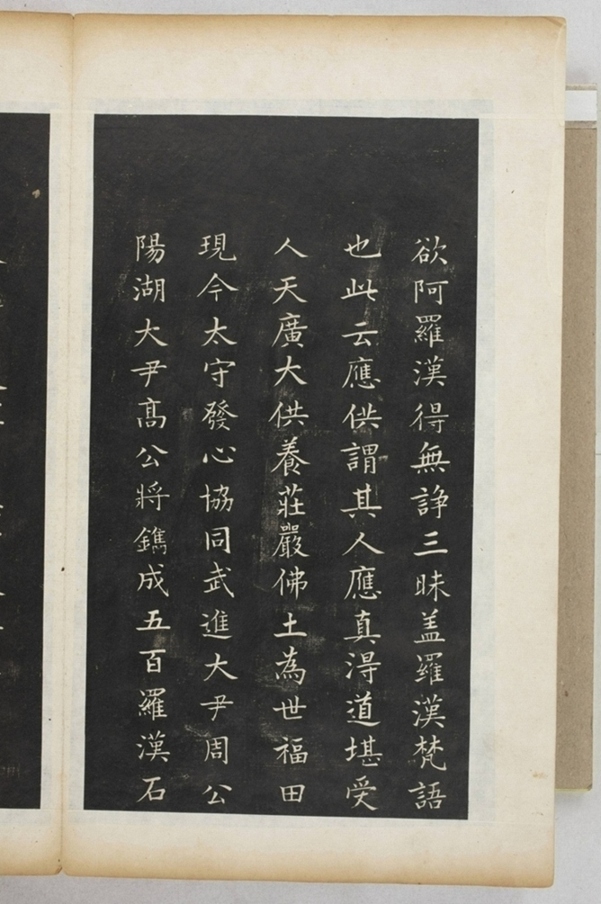 欲阿羅漢得無諍三昧盖羅漢梵語
也此云應供謂其人應真得道堪受
人天廣大供養莊嚴佛土為世福田
現今太守發心協同武進大尹周公
陽湖大尹髙公將鐫成五百羅漢石